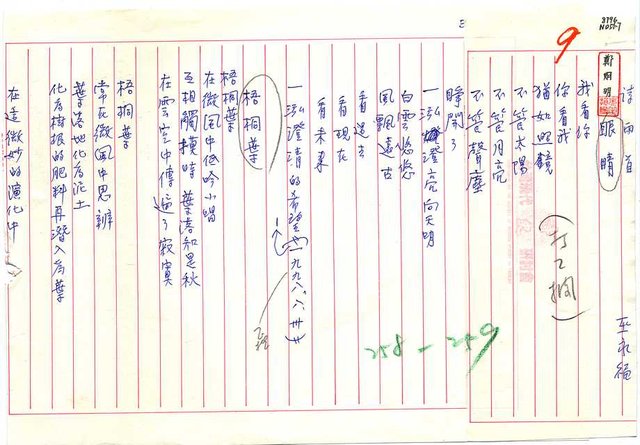 8796
NO57-7
9
詩兩首
巫永福
鄭烱明
眼睛
我看你
你看我
猶如照鏡
不管太陽
不管月亮
不管聲塵
(打工欄)
睜開了
一泓澄亮向天明
白雲悠悠
風飄遠古
看過去
看現在
看未來
一泓澄清的希望
(一九九八、六、卅)
梧桐葉
梧桐葉
在微風中低吟小唱
互相觸摸時 葉落知是秋
在雲空中傳遍了寂寞
梧桐葉
常在微風中思辨
葉落地化為泥土
化為樹根的肥料再潛入為葉
在這微妙的演化中
258-259